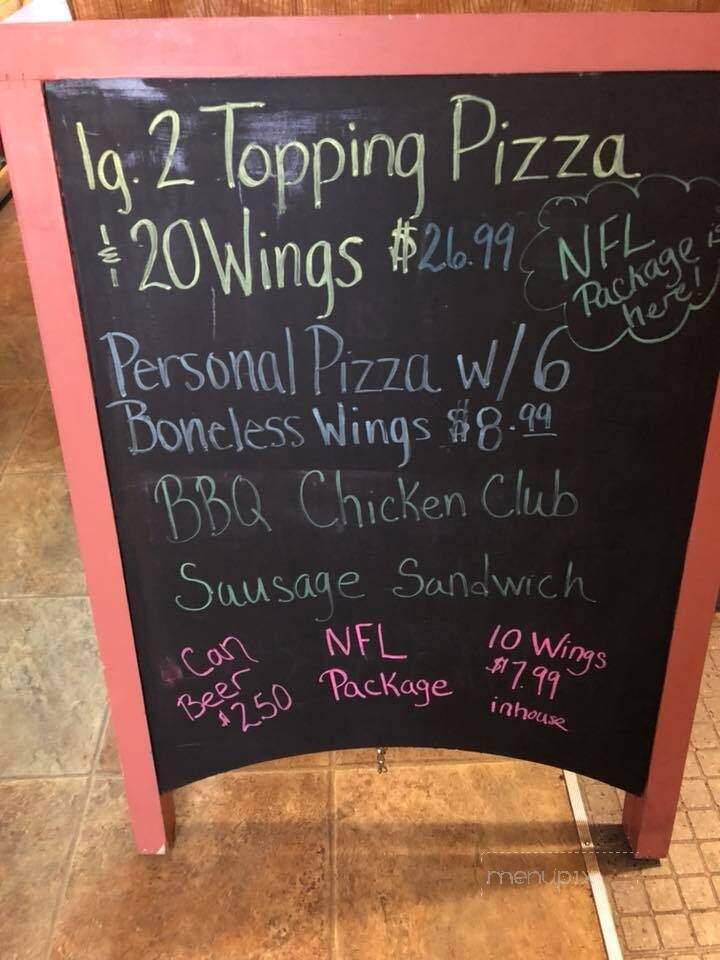 lg. 2 Topping Pizza
& 20 Wings $26.99
NFL
Package is
here!
Personal Pizza w/6
Boneless Wings $8.99
BBQ Chicken Club
Sausage Sandwich
Can
Beer
$2.50
NFL
Package
10 Wings
$7.99
inhouse
menupix